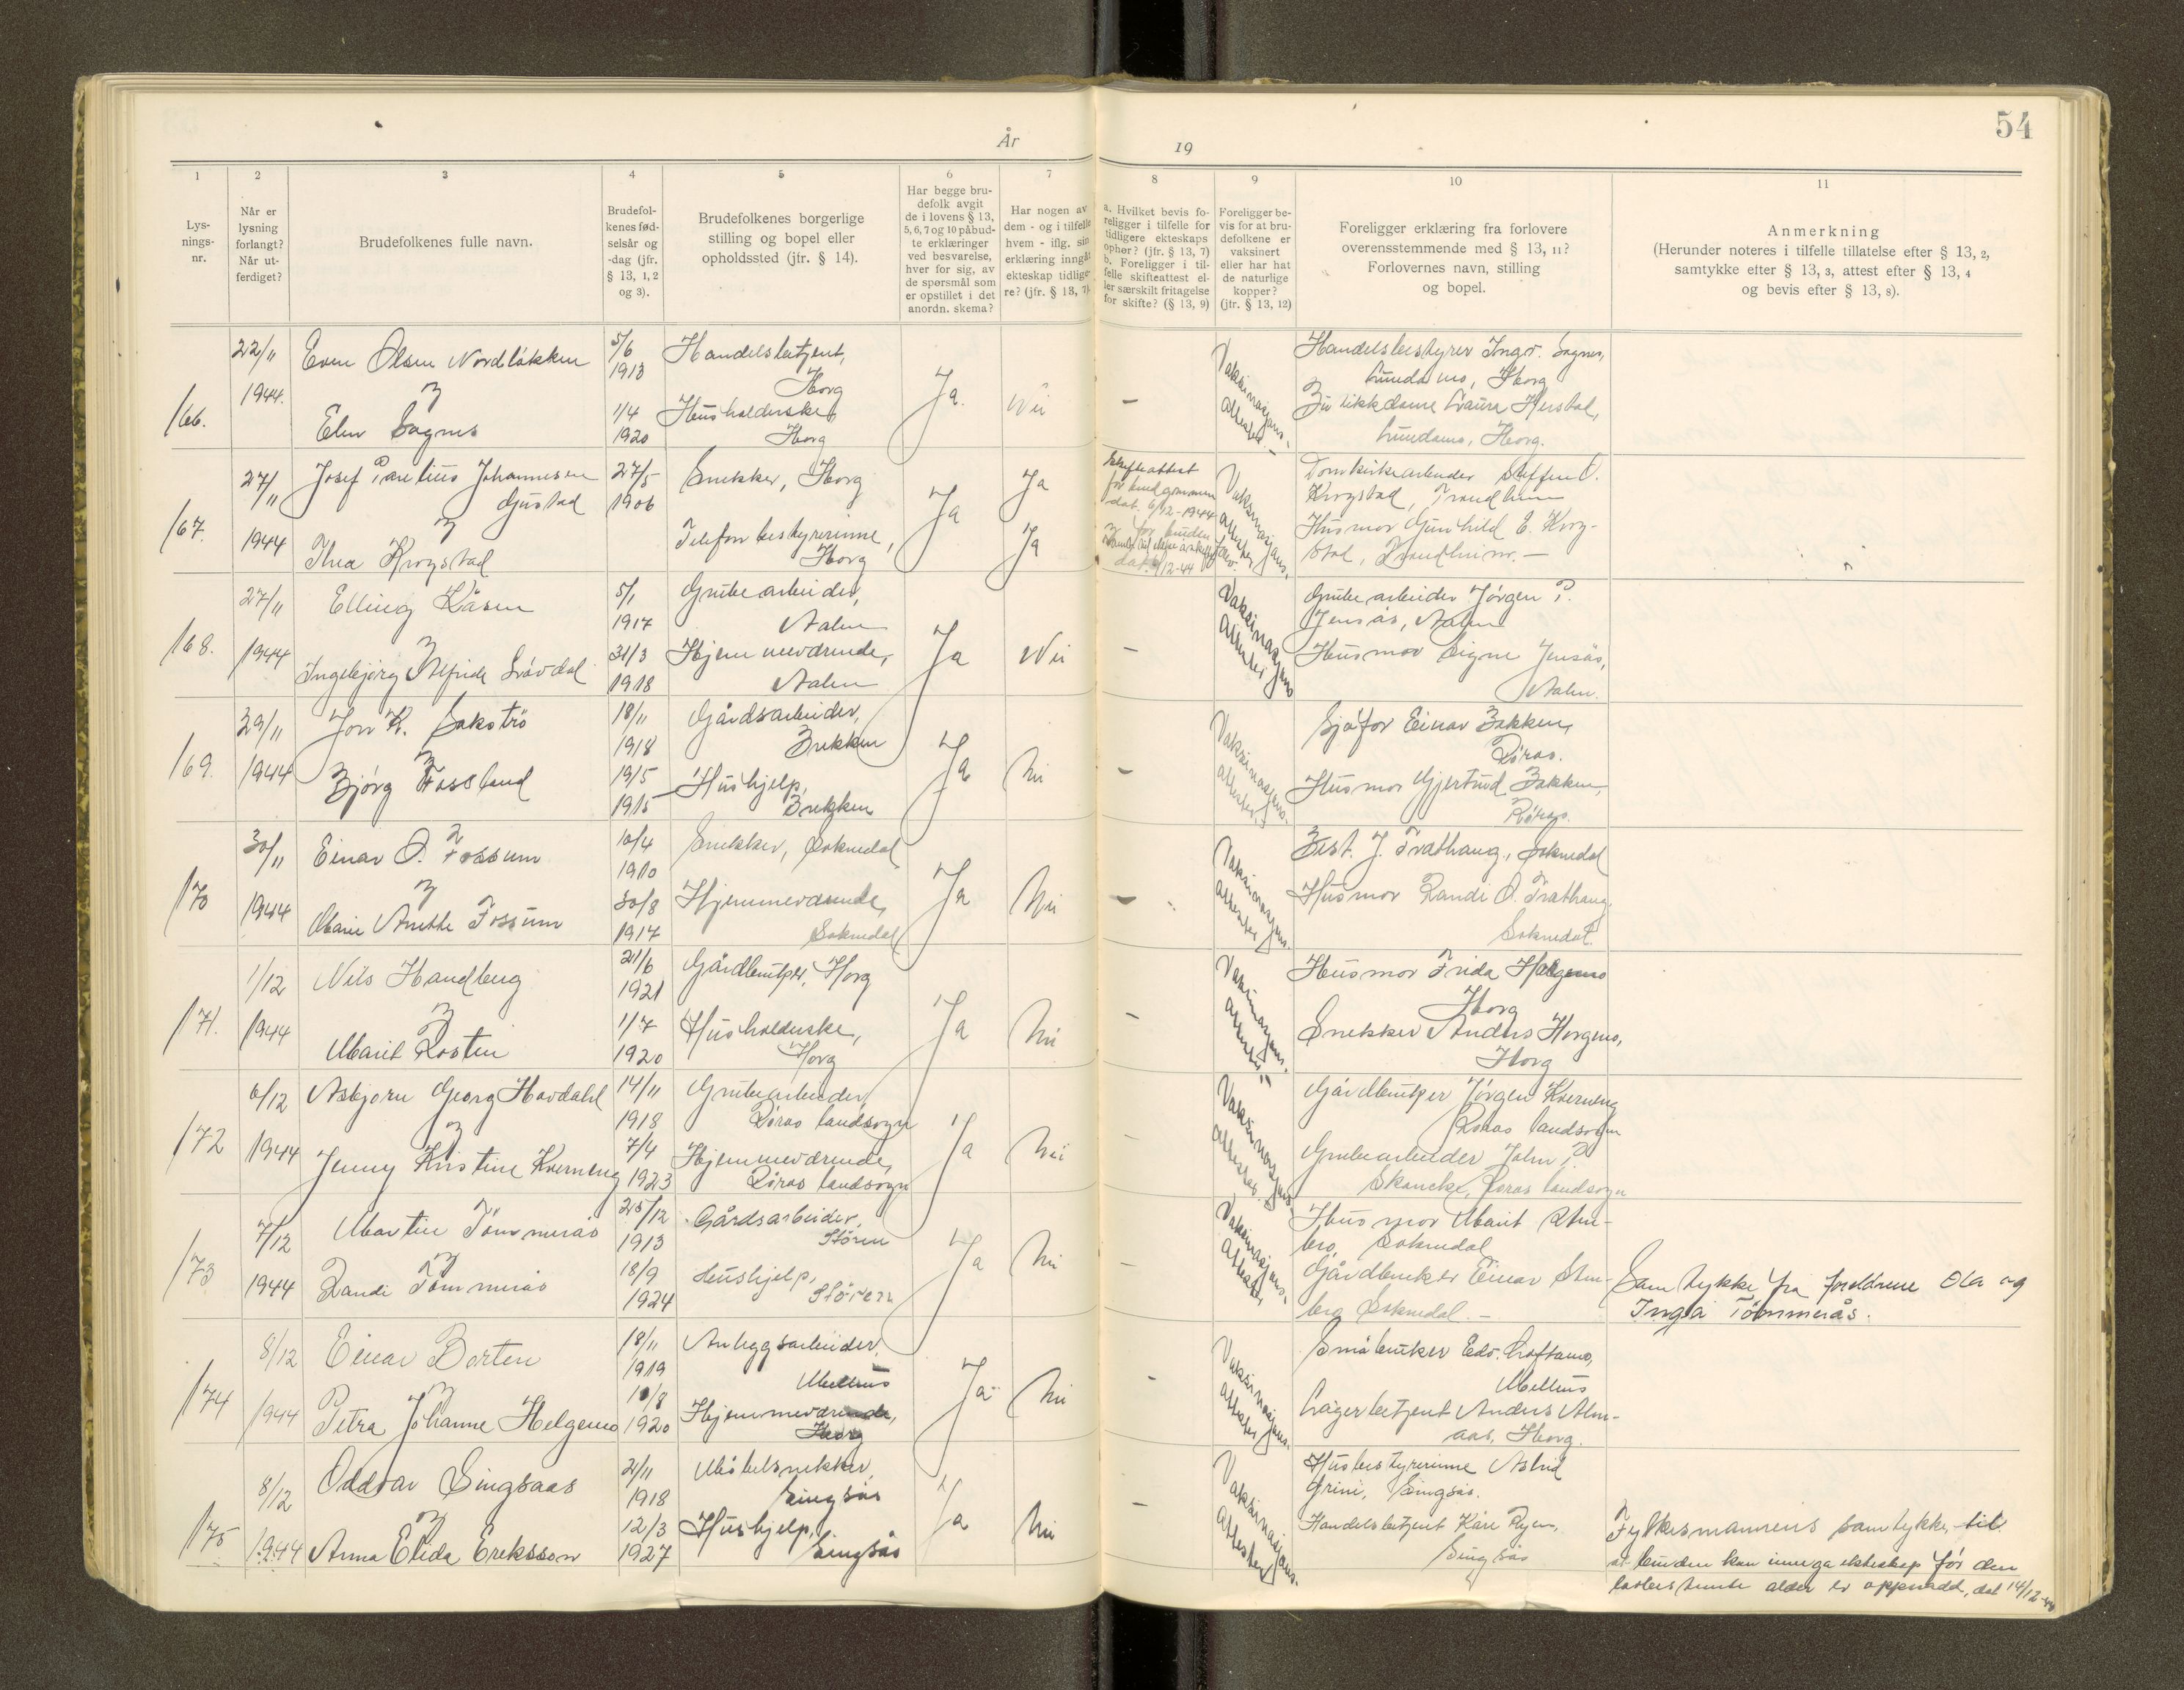 54
År
19
1
2
3
4
5
6
7
8
9
10
11
Lys-
nings-
nr.
Når er
lysning
forlangt?
Når ut-
ferdiget?
Brudefolkenes fulle navn.
Brudefol-
kenes fød-
selsår og
-dag (jfr.
§ 13, 1, 2
og 3).
Brudefolkenes borgerlige
stilling og bopel eller
opholdssted (jfr. § 14).
Har begge bru-
defolk avgit
de i lovens § 13,
5, 6, 7 og 10 påbud-
te erklæringer
ved besvarelse,
hver for sig, av
de spørsmål som
er opstillet i det
anordn. skema?
Har nogen av
dem - og i tilfelle
hvem - iflg. sin
erklæring inngåt
ekteskap tidlige-
re? (jfr. § 13, 7).
a. Hvilket bevis fo-
religger i tilfelle for
tidligere ekteskaps
ophør? (jfr. § 13, 7)
b. Foreligger i til-
felle skifteattest el-
ler særskilt fritagelse
for skifte? (§ 13, 9)
Foreligger be-
vis for at bru-
defolkene er
vaksinert
eller har hat
de naturlige
kopper?
(jfr. § 13, 12)
Foreligger erklæring fra forlovere
overensstemmende med § 13, 11?
Forlovernes navn, stilling
og bopel.
Anmerkning
(Herunder noteres i tilfelle tillatelse efter § 13, 2,
samtykke efter § 13, 3, attest efter § 13, 4
og bevis efter § 13, 8).
166.
22/11
1944.
Even Olsen Nordløkken
Elen Sagnes
5/6
1913
1/4
1920
Handelsbetjent,
Horg
Husholderske,
Horg
Ja.
Nei
–
Vaksinasjons-
attester
Handelsbestyrer Ingv. Sagnes,
Lundamo, Horg
Butikkdame Laura Herstad,
Lundamo, Horg.
167.
27/11
1944
Josef Parelius Johannesen
Gustad
Thea Krogstad
27/5
1906
Snekker, Horg
Telefonbestyrerinne,
Horg
Ja
Ja
Ja
Skifteattest
for brudgommen
dat. 6/12-1944
for bruden
dat. 4/12-44
Vaksinasjons-
attester
Domkirkearbeider Steffen O.
Krogstad, Trondheim
Husmor Gunhild E. Krog-
stad, Trondheim. –
168.
27/11
1944
Elling Kåsen
Ingebjørg Alfride Løvdal
5/1
1917
31/3
1918
Grubearbeider,
Aalen
Hjemmeværende,
Aalen
Ja
Nei
–
Vaksinasjons
attester
Grubearbeider Jørgen P.
Jensås, Aalen
Husmor Signe Jensås,
Aalen.
169.
29/11
1944
Jon K. Sakstrø
Bjørg Fossland
18/11
1918
19/5
1915
Gårdsarbeider,
Brekken
Hushjelp,
Brekken
Ja
Nei
–
Vaksinasjons-
attester
Sjåfør Einar Bakken,
Røros.
Husmor Gjertrud Bakken,
Røros.
170
30/11
1944
Einar O. Fossum
Marie Anette Fossum
10/4
1910
30/8
1917
Snekker, Soknedal
Hjemmeværende,
Soknedal
Ja
Nei
–
Vaksinasjons-
attester
Best. J. Træthaug, Soknedal
Husmor Randi O. Træthaug,
Soknedal.
171.
1/12
1944
Nils Handberg
Marit Rostin
21/6
1921
1/7
1920
Gårdbruker, Horg
Husholderske,
Horg
Ja
Nei
–
Vaksinasjons-
attester
Husmor Frida Horgemo
Horg
Snekker Anders Horgemo,
Horg
172
6/12
1944
Asbjørn Georg Hovdahl
Jenny Kristine Kverneng
14/11
1918
7/4
1923
Grubearbeider,
Røros landsogn
Hjemmeværende,
Røros landsogn
Ja
Nei
–
Vaksinasjons-
attester
Gårdbruker Jørgen Kverneng
Røros landsogn
Grubearbeider John P.
Skancke, Røros landsogn
173
7/12
1944
Martin Tømmerås
Randi Tømmerås
25/12
1913
18/9
1924
Gårdsarbeider,
Støren
Hushjelp,
Støren
Ja
Nei
–
Vaksinasjons-
attester
Husmor Marit Sten-
bro, Soknedal
Gårdbruker Einar Sten-
bro Soknedal. –
Samtykke fra foreldrene Ola og
Inga Tømmerås.
174
8/12
1944
Einar Borten
Petra Johanne Helgemo
18/11
1919
10/8
1920
Anleggsarbeider,
Melhus
Hjemmeværende,
Horg
Ja
Nei
–
Vaksinasjons-
attester
Småbruker Edv. Loftamo,
Melhus
Lagerbetjent Anders Alm-
aas, Horg.
175
8/12
1944
Oddvar Singsaas
Anna Elida Eriksson
21/11
1918
12/3
1927
Møbelsnekker,
Singsås
Hushjelp,
Singsås
Ja
Nei
–
Vaksinasjons-
attester
Husbestyrerinne Astrid
Grini, Singsås.
Handelsbetjent Kåre Ryen,
Singsås
Fylkesmannens samtykke til
at bruden kan inngå ekteskap før den
lovbestemte alder er oppnådd, dat 14/12-44